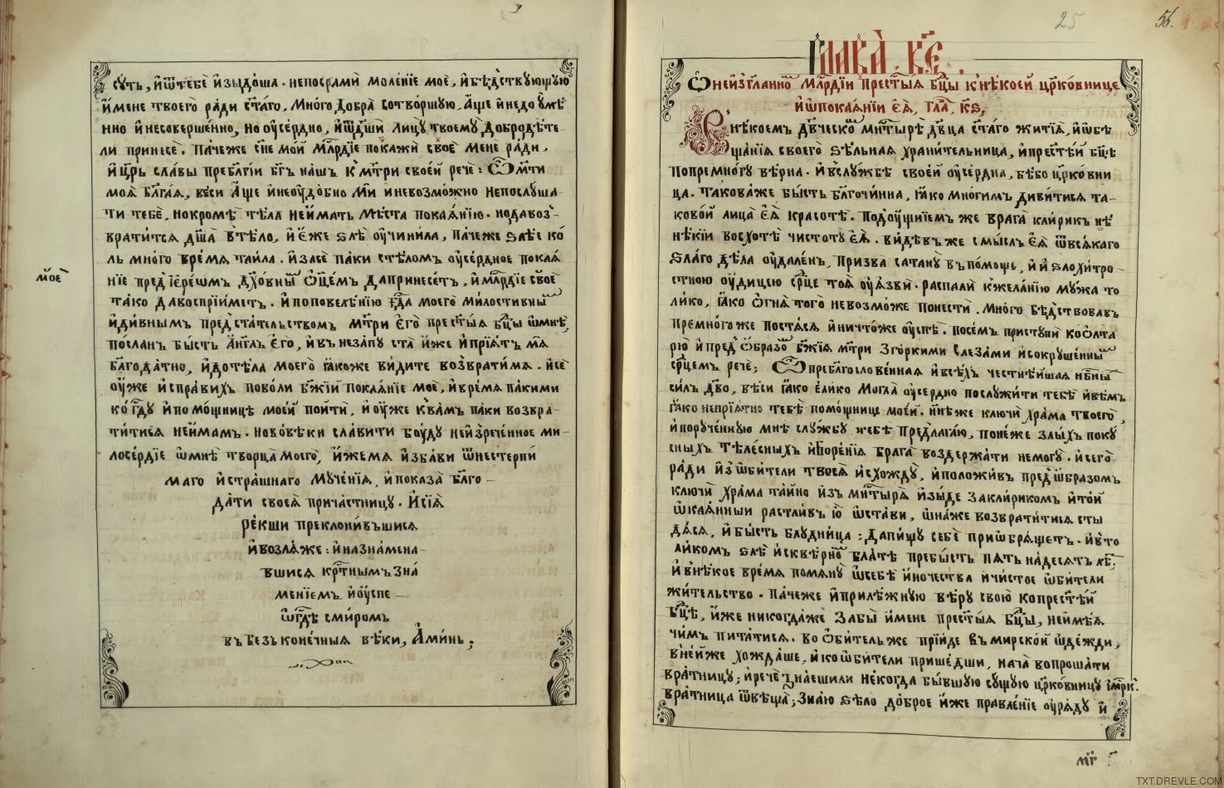 суть, и҆ ѿтебѐ и҆зыдоша . непосрами моленїе моѐ, и҆бѣдствующую
и҆мене твоего ради ст҃аго, много добра сотворшую, а҆ще и҆недоꙋмѣ
нно и҆несовершенно, но оу҆сердно, и҆ѿдѣши лицꙋ твоемꙋ добродѣте-
ли принесѐ . паче же сн҃е мой млⷭ҇рдїе покажи своѐ мене ради ,
и҆ цр҃ь славы пребл҃гїи бг҃ъ нашъ к мт҃ри своей речѐ : ѽ мт҃и
моѧ бл҃гаѧ, вѣси а҆ще и҆неоу҆добно ми и҆невозможно непослуша
ти тебѐ, но кромѣ тѣла неи҆мать мѣста покаѧнїю . но да воз-
вратитсѧ дш҃а в тѣло, и҆ є҆же ѕлѣ оу҆чинила, паче же ѕлѣе ко
ль много времѧ таила . и҆злѣѐ паки стѣломъ оу҆сердное покаѧ
нїе пред і҆ере́омъ дх҃овны́м ѻ҆ц҃емъ да принесетъ, и҆ млⷭ҇рдїе своѐ
моѐ
тако да воспрїиметъ . и҆ по повелѣнїю гдⷭ҇а моего милостивны́м
и҆дивнымъ пред стательствомъ мт҃ри є҆го престⷭ҇ыѧ бц҃ы ѡ҆ мнѣ,
посланъ бысть а҆нг҃лъ є҆го, и҆ въ незапу ста и҆же и҆прїѧтъ мѧ
благодатно, и҆ до тѣла моего ꙗ҆коже видите возврати мѧ . и҆се
оу҆же и҆справихъ поволи бж҃їи покаѧнїе моѐ, и҆времѧ паки ми
ко гдⷭ҇у и҆ помощнице моей пойти, и҆ оу҆же к вамъ паки возвра-
титисѧ неи҆мамъ . но во вѣки славити буду неи҆зреченное ми-
лосердїе ѡ҆ мнѣ творца моего, и҆же мѧ и҆збави ѿнестерпи
маго и҆ страшнаго мученїѧ, и҆ показа бл҃го -
дати своеѧ причастницꙋ . и҆ сїѧ
рекши преклонившисѧ
и҆ возлѧже : и҆ назнамена-
вшисѧ крⷭ҇тнымъ зна
менїемъ и҆ оу҆спе -
ѡ҆ гдⷭ҇ѣ с миромъ
въ безъконечныѧ вѣки, а҆минь ;
25
56.
Глава к҃е .
Ѡ҆ неи҆зг҃ланно́м млⷭ҇рдїи престⷭ҇ыѧ бц҃ы к нѣкоей цр҃ковнице
и҆ ѡ҆ покаѧнїи є҆ѧ̀, гла к҃ѕ,
В нѣкоемъ дв҃ческо́м мн҃тырѣ дв҃ца ст҃аго житїѧ, и҆ ѡ҆бѣ
щанїѧ своего ѕѣльнаѧ хранительница, и҆ престⷭ҇ей бц҃е
по премногу вѣрна . и҆ в службѣ своей оу҆сердна, бѣ бо цр҃ковни
ца . такова же бысть бл҃гочинна, ꙗ҆ко многимъ дивитисѧ та-
ковой лица є҆ѧ красотѣ . под оу҆щнїемъ же врага клирик нѣ
нѣкїи восхотѣ чистоту є҆ѧ . видѣвъ же смыслъ є҆ѧ ѿвсѧкаго
ѕлаго дѣла оу҆даленъ, призва сатану въ помощь, и҆ и҆ ѕлохитро-
стною оу҆дицею срⷣце тоѧ оу҆ѧзви . распали к желанїю мужа то
лико, ꙗ҆ко ѻ҆гнѧ того невозможе понести . много бѣдствовавъ
премного же постѧсѧ и҆ ничтоже оу҆спѣ . посемъ приступи ко ѻ҆лта
рю и҆ пред ѻ҆бразо́м бж҃їѧ мт҃ри згоркими слезами и҆ сокрушенны́м
срⷣцемъ рече ; ѽ преблагословеннаѧ и҆ всѣхъ честнѣйшаѧ нбⷭ҇ны́х
силъ дв҃о, вѣси ꙗ҆ко є҆лико могла оу҆сердно послужити тебѣ и҆ вѣмъ
ꙗ҆ко непрїѧтно тебѣ помощнице моей . нн҃ѣ же ключи храма твоего
и҆ порученную мнѣ службу к себѣ предлагаю, понеже злыхъ поку
сныхъ тѣлесныхъ и҆ боренїѧ врага воздержати немогу . и҆ сего
ради и҆з ѻ҆бители твоеѧ и҆схожду, и҆ положивъ пред ѡ҆бразомъ
ключи храма тайно и҆зъ мн҃тырѧ и҆зыде за клирикомъ и҆ той
ѡ҆каѧнныи растливъ ю̀ ѡ҆стави, ѡ҆на же возвратитисѧ сты
дѧсѧ, и҆ бысть блудница ; да пищу себѣ приѡ҆брѧщетъ . и҆ в то
ликомъ ѕлѣ и҆ сквернѣ́м блатѣ пребысть пѧть надесѧть лѣ́т
и҆ в нѣкое времѧ помѧну ѡ҆ себѣ и҆ночества и҆ чистое ѡ҆бители
жительство . паче же и҆ прилѣжную вѣру свою ко престⷭ҇ей
бц҃ѣ, и҆же никогда же забы и҆мене престⷭ҇ыѧ бц҃ы, неи҆мѣѧ
чимъ питатисѧ . во ѻ҆битель же прїиде в мирской ѡ҆дежди,
в ней же хождаше, и҆ ко ѡ҆бители пришедши, нача вопрошати
вратницу ; и҆ рече знаеши ли некогда бывшую сущую цр҃ковницу и҆мрⷦ҇
вратница ѿвѣща ; знаю ѕѣло доброе и҆же правленїе оу҆рѧду и҆
TXT.DREVLE.COM